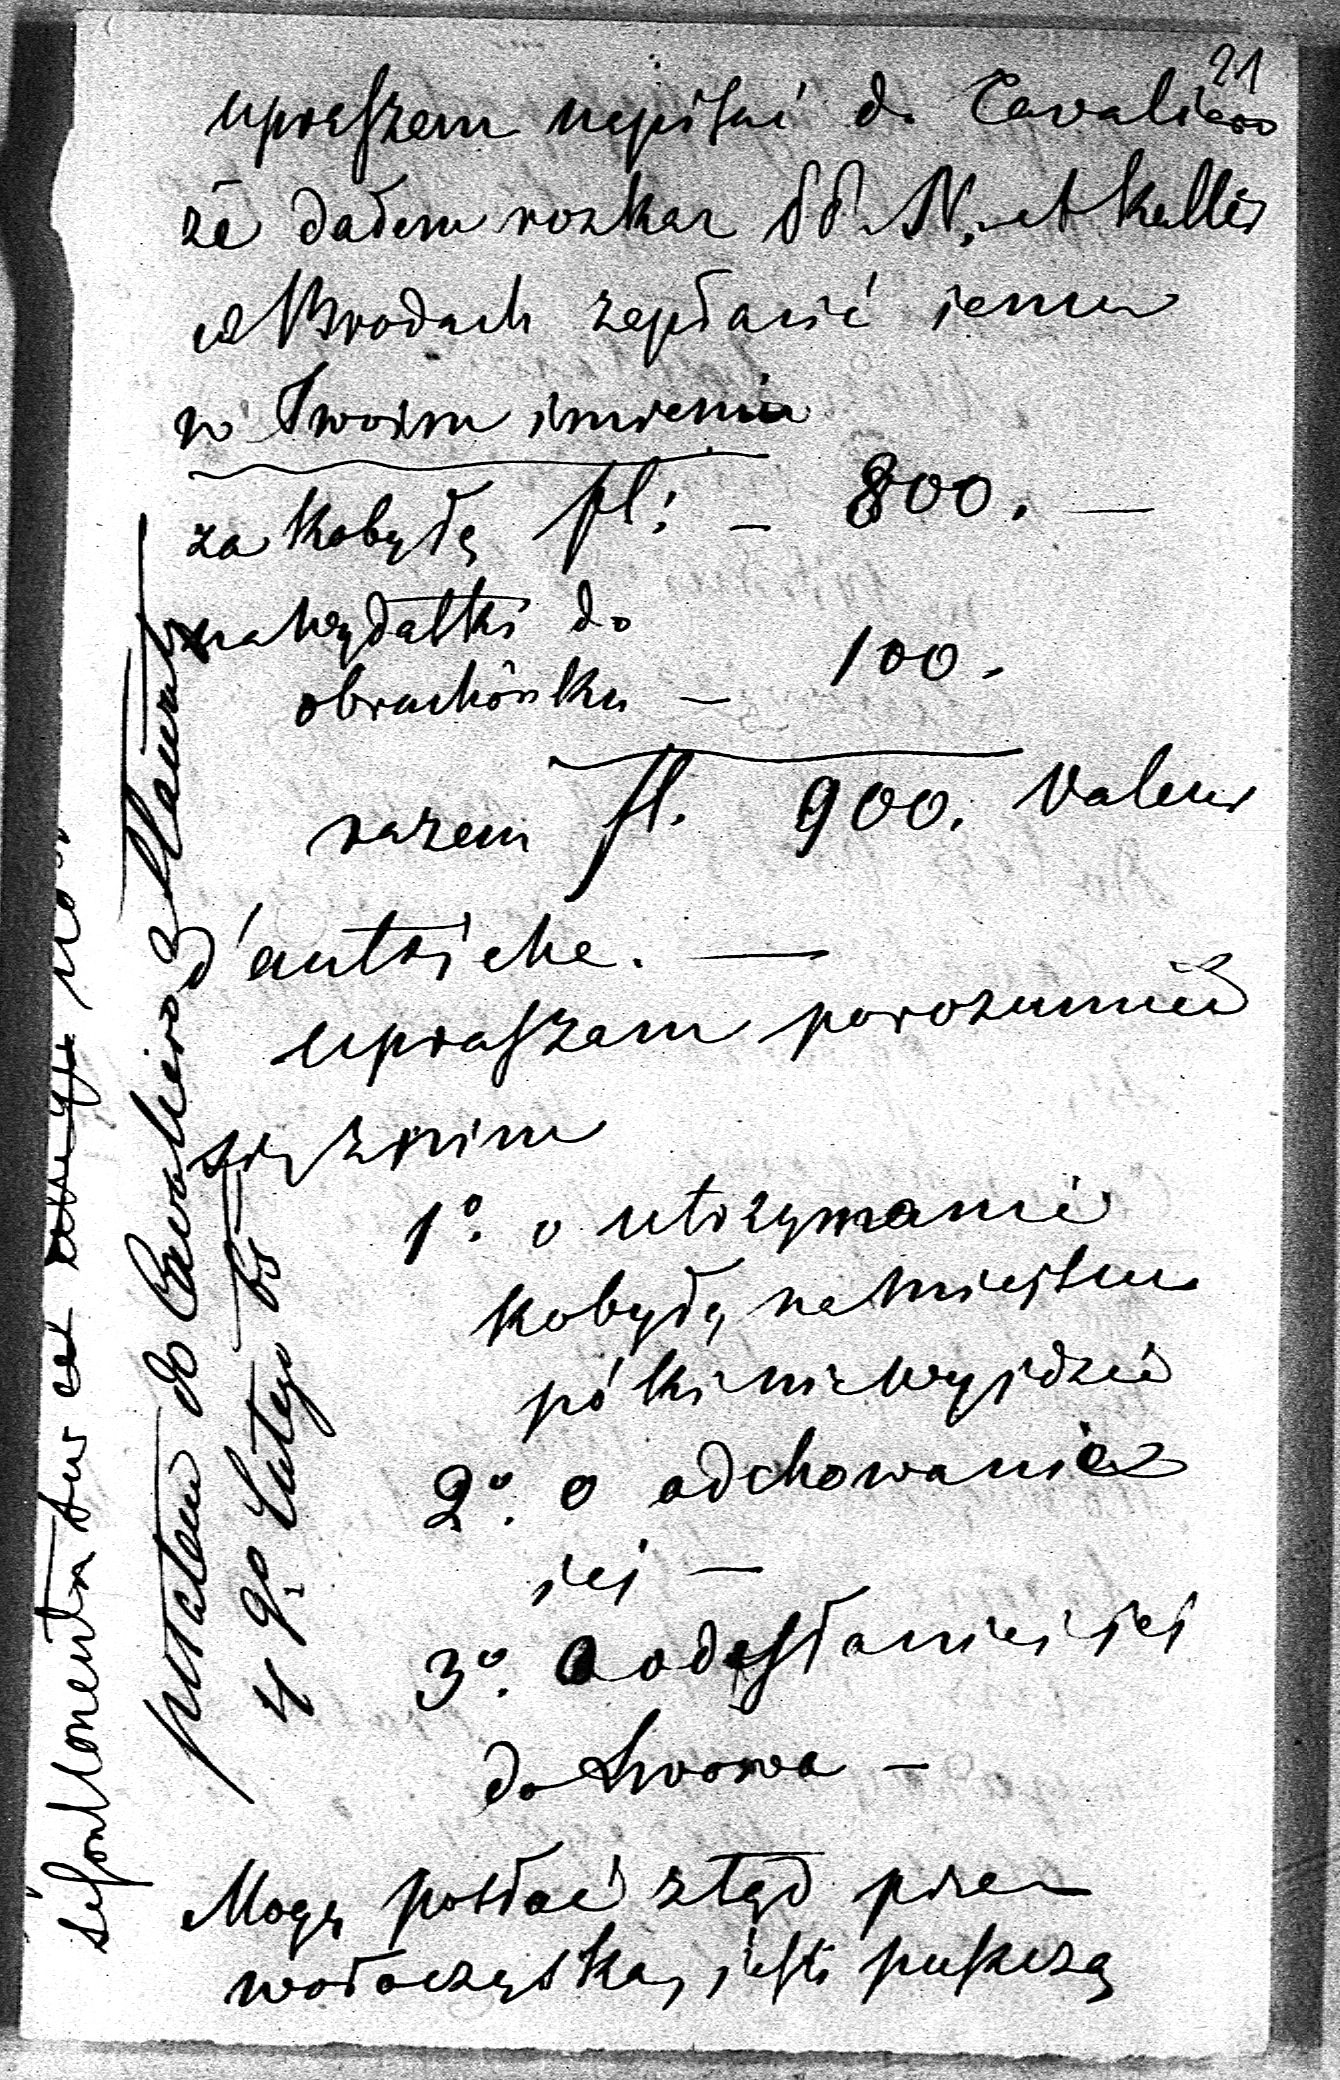 21
upraszem napisać do Cavaliero
że dałem rozkaz PP. N. et Kallir
w Brodach zapłacić jemu
w Twoim imieniu
za kobyłę fl: – 800. —
na wydatki do
obrachónku – 100.
razem fl. 900. Valeur
d'autriche. —
upraszam porozumieć
się z nim
1º. o utrzymanie
kobyły na miejscu
póki nie wyjdzie
2º. o odchowanie
jej —
3º. o odesłanie jej
do Lwowa –
Mogę posłać ztąd przez
wołoczyska, jeśli puszczą
pisałem do Cavaliero z
4 go Lutego